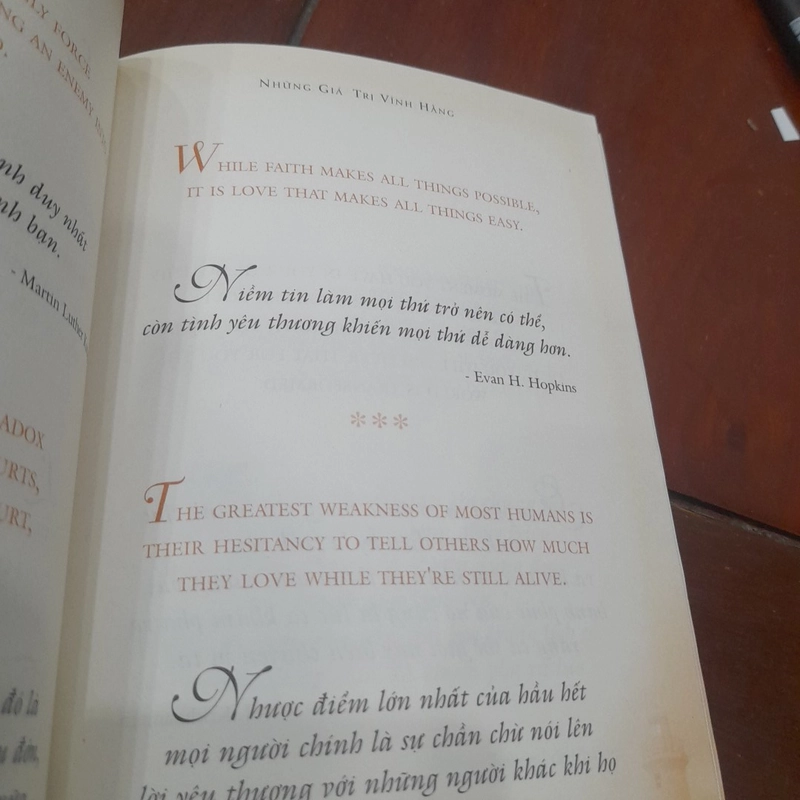 LY FORCE
NG AN ENEMY IN
nh duy nhất
nh bạn.
- Martin Luther
ADOX
URTS,
URT,
đó là
đớn,
NHỮNG GIÁ TRỊ VĨNH HẰNG
WHILE FAITH MAKES ALL THINGS POSSIBLE,
IT IS LOVE THAT MAKES ALL THINGS EASY.
Niềm tin làm mọi thứ trở nên có thể,
còn tình yêu thương khiến mọi thứ dễ dàng hơn.
- Evan H. Hopkins
***
THE GREATEST WEAKNESS OF MOST HUMANS IS
THEIR HESITANCY TO TELL OTHERS HOW MUCH
THEY LOVE WHILE THEY'RE STILL ALIVE.
Nhược điểm lớn nhất của hầu hết
mọi người chính là sự chần chừ nói lên
lời yêu thương với những người khác khi họ